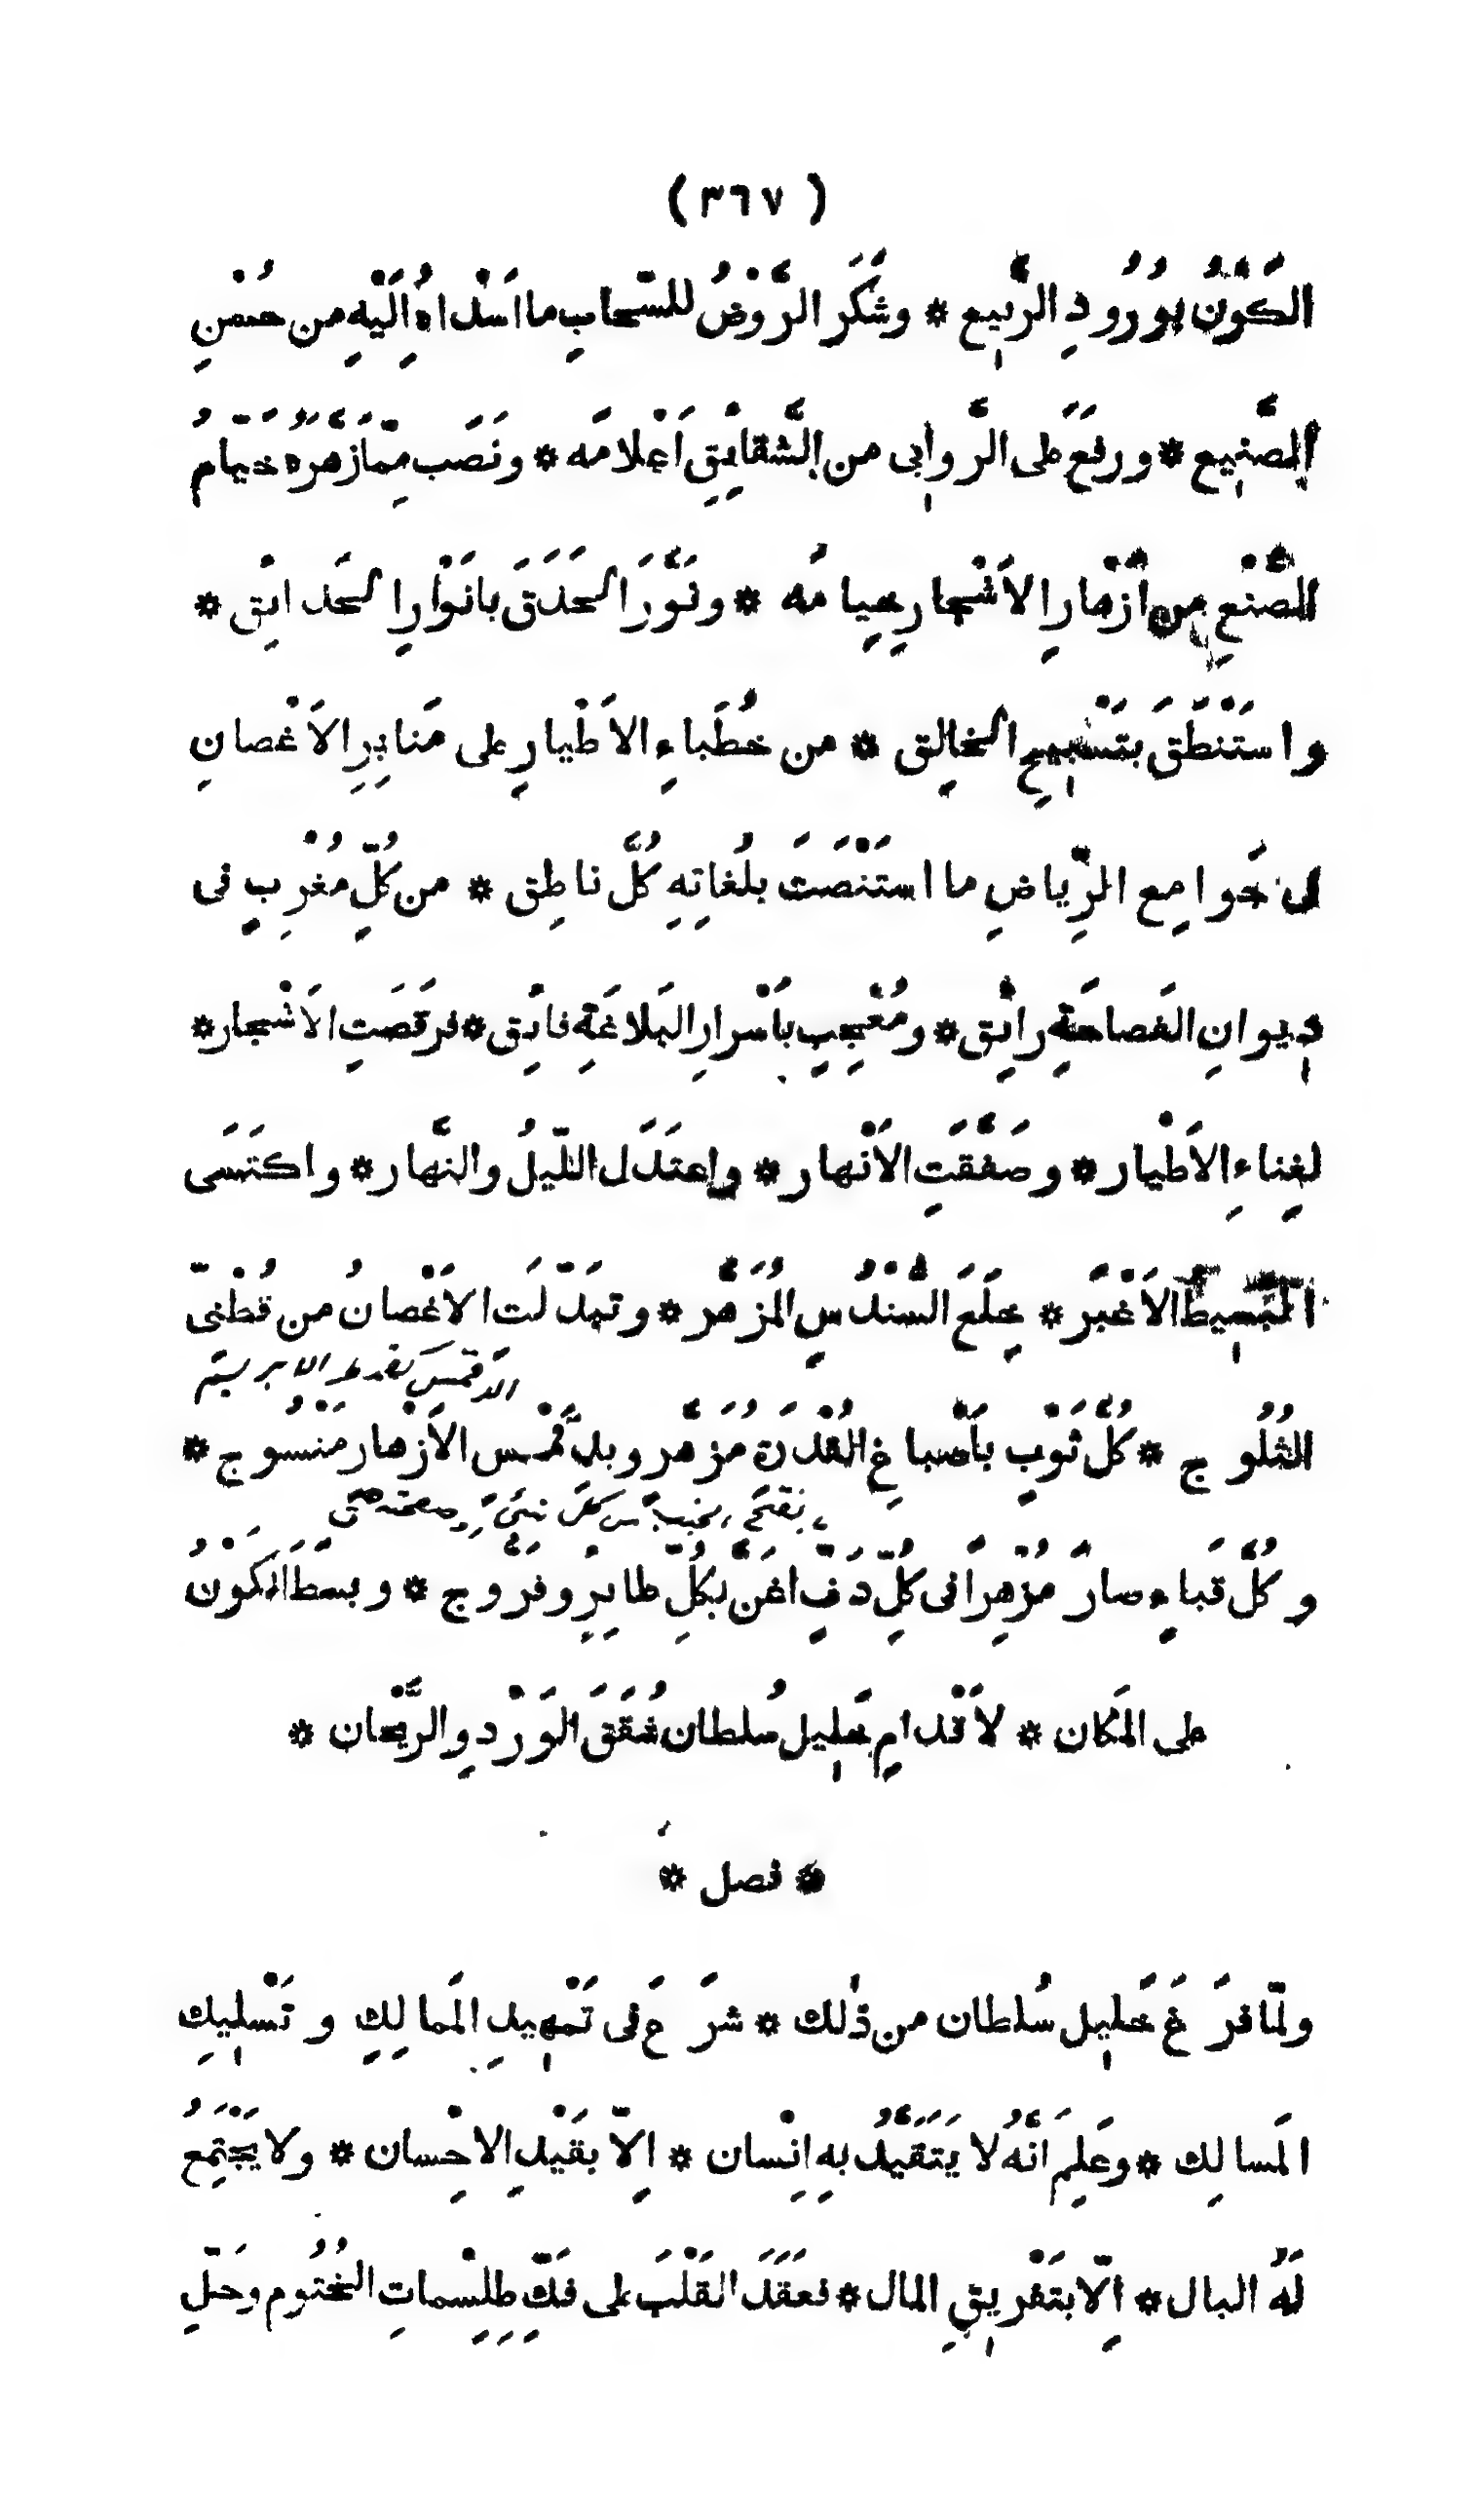 ( ٣٦٧ )
الكَوْنُ بوُرُودِ الرَّبيع * وشَكَر الرَّوْضُ للسّحابِ ما اَسْداهُ اِلَيْهِ من حُسْنِ
الصَّنيع * ورفَعَ على الرَّوابى من الشَّقايِقِ اَعْلامَه * ونَصَب مِمّا زَهَّرَهُ خَيّامُ
الصُّنْعِ من اَزْهارِ الاَشْجارِ خِيامَه * ونَوَّرَ الحَدَقَ بانَوْارِ الحَدايِق *
واستَنْطَقَ بتَسْبيحِ الخالِق * من خُطَباءِ الاَطْيارِ على مَنابِرِ الاَغْصانِ
فى جَوامِع الرِّياضِ ما استَنْصَتَ بلُغاتِهِ كُلَّ ناطِق * من كُلِّ مُغْرِبٍ فى
ديوانِ الفَصاحَةِ رائِق * ومُعْجِبٍ بأَسْرارِ البَلاغَةِ فائِق * فرقَصَتِ الاَشْجار *
لغِناءِ الاَطْيار * وصَفَّقَتِ الاَنْهار * واعتدَلَ اللّيلُ والنَّهار * واكتَسَى
البَسيطُ الاَغْبَر * خِلَعَ السُّنْدُسِ المُزَهَّر * وتبدَّلَت الاَغْصانُ من قُطْنِىّ
الدمقس بفتح الابريسم
الثلُوُج * كُلَّ ثَوْبٍ بأَصْباغِ القُدْرَةِ مُزَهَّر وبدِمَّقْس الاَزْهار مَنْسُوج *
وكُلَّ قَباءٍ صارَ مُزْهِرًا فى كُلِّ دَفٍّ اغَنَّ بكُلِّ طايِرٍ وفَرُّوج * وبسَطَ الكَوْنُ
على المَكان * لاَقْدامِ خَليل سُلطان شُقَقَ الوَرْدِ والرَّيْحان *
* فصل *
ولمّا فرَغَ خَليل سُلطان من ذٰلك * شرَعَ فى تَمْهيدِ المَمالِكِ وتَسْليكِ
المَسالِك * وعَلِمَ انَّهُ لا يَتَقَيَّدُ بِهِ اِنْسان * اِلاّ بقَيْدِ الاِحْسان * ولا يَجْتَمِعُ
لَهُ البال * اِلاّ بتَفْريقِ المال * فعَقَدَ القَلْبَ على فكِّ طِلِسْماتِ الخُتُوم وحَلِّ